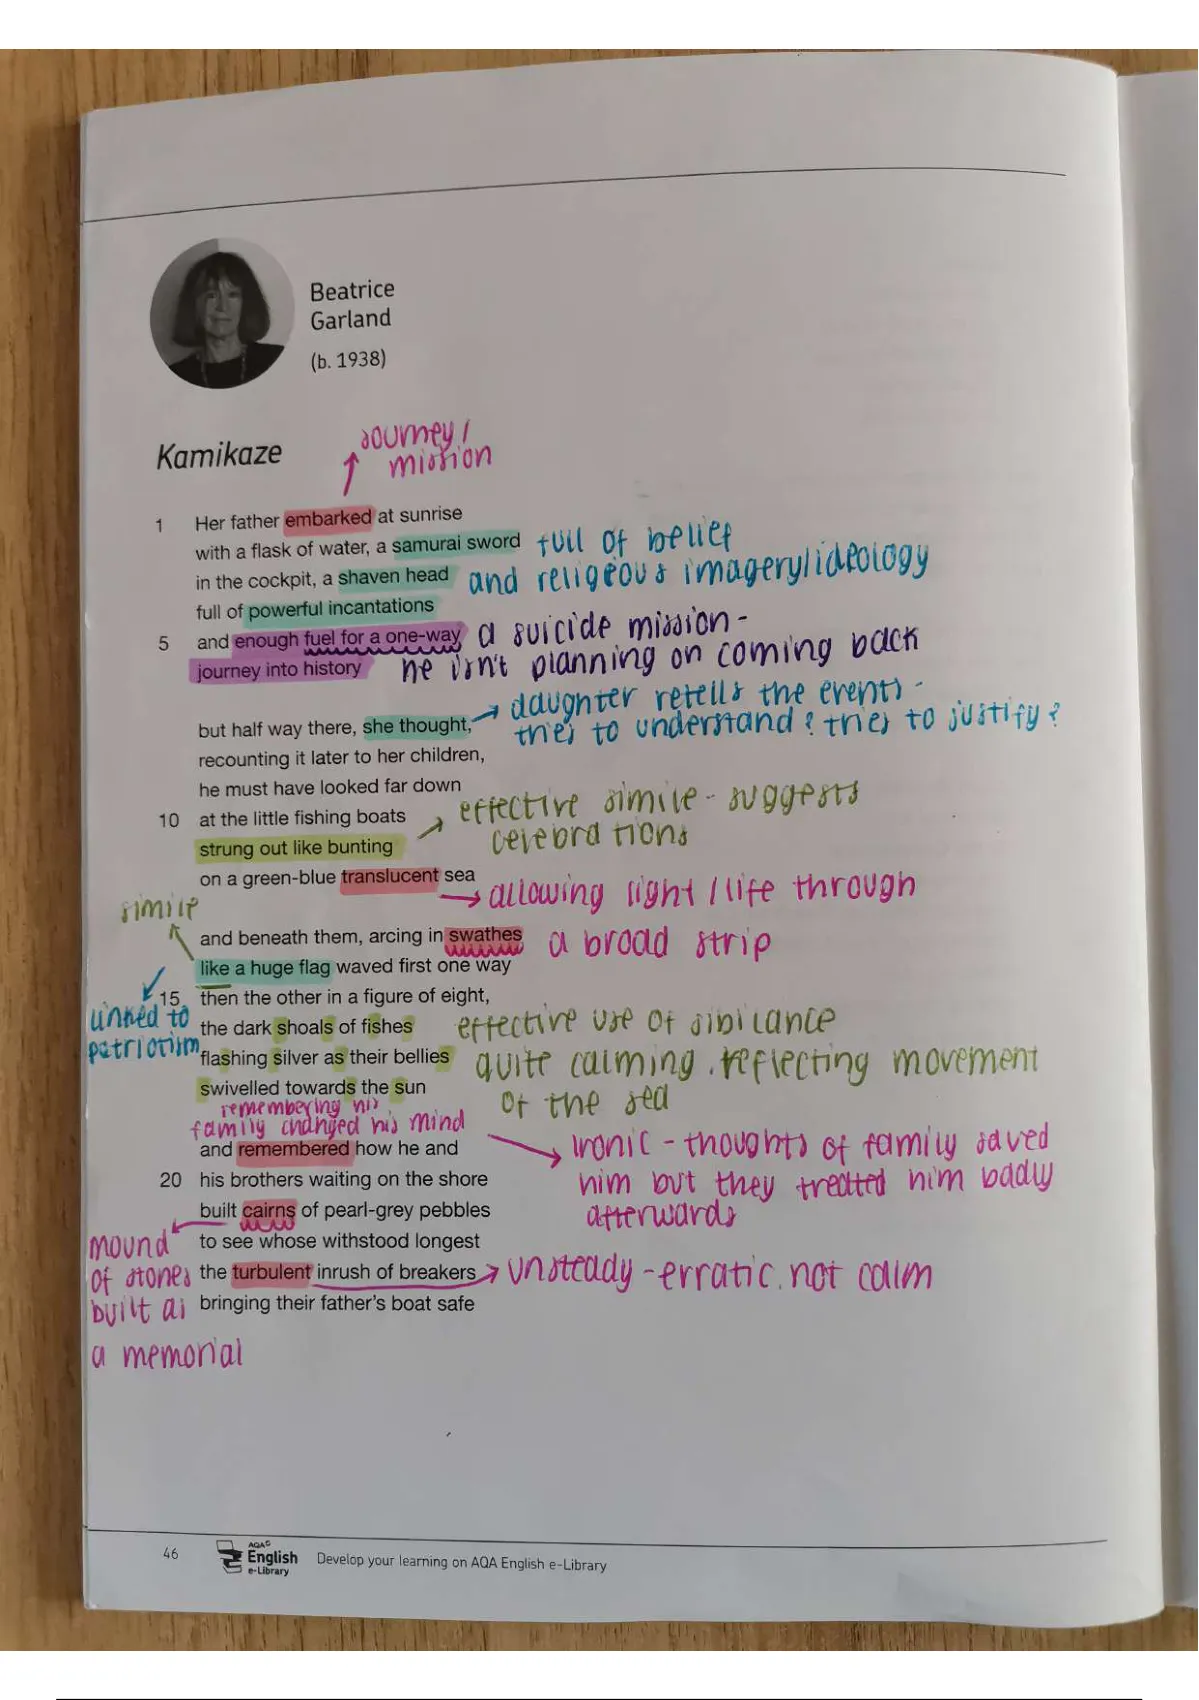 Beatrice
Garland
(b. 1938)
Kamikaze
Journey /
mission
1 Her father embarked at sunrise
with a flask of water, a samurai sword full of belief
in the cockpit, a shaven head and religious imagery/ideology
full of powerful incantations
5 and enough fuel for a one-way a suicide mission -
journey into history he isn't planning on coming back
daughter retells the events -
but half way there, she thought, tries to understand? tries to justify?
recounting it later to her children,
he must have looked far down
10 at the little fishing boats effective simile - suggests
strung out like bunting celebrations
on a green-blue translucent sea allowing light / life through
simile
and beneath them, arcing in swathes a broad strip
like a huge flag waved first one way
15 then the other in a figure of eight,
linked to
patriotism
the dark shoals of fishes effective use of sibilance
flashing silver as their bellies quite calming. reflecting movement
swivelled towards the sun of the sea
remembering his
family changed his mind
and remembered how he and ironic - thoughts of family saved
20 his brothers waiting on the shore him but they treated him badly
built cairns of pearl-grey pebbles afterwards
to see whose withstood longest
the turbulent inrush of breakers unsteady - erratic. not calm
bringing their father's boat safe
mound
of stones
built as
a memorial
46 AQA English e-Library Develop your learning on AQA English e-Library